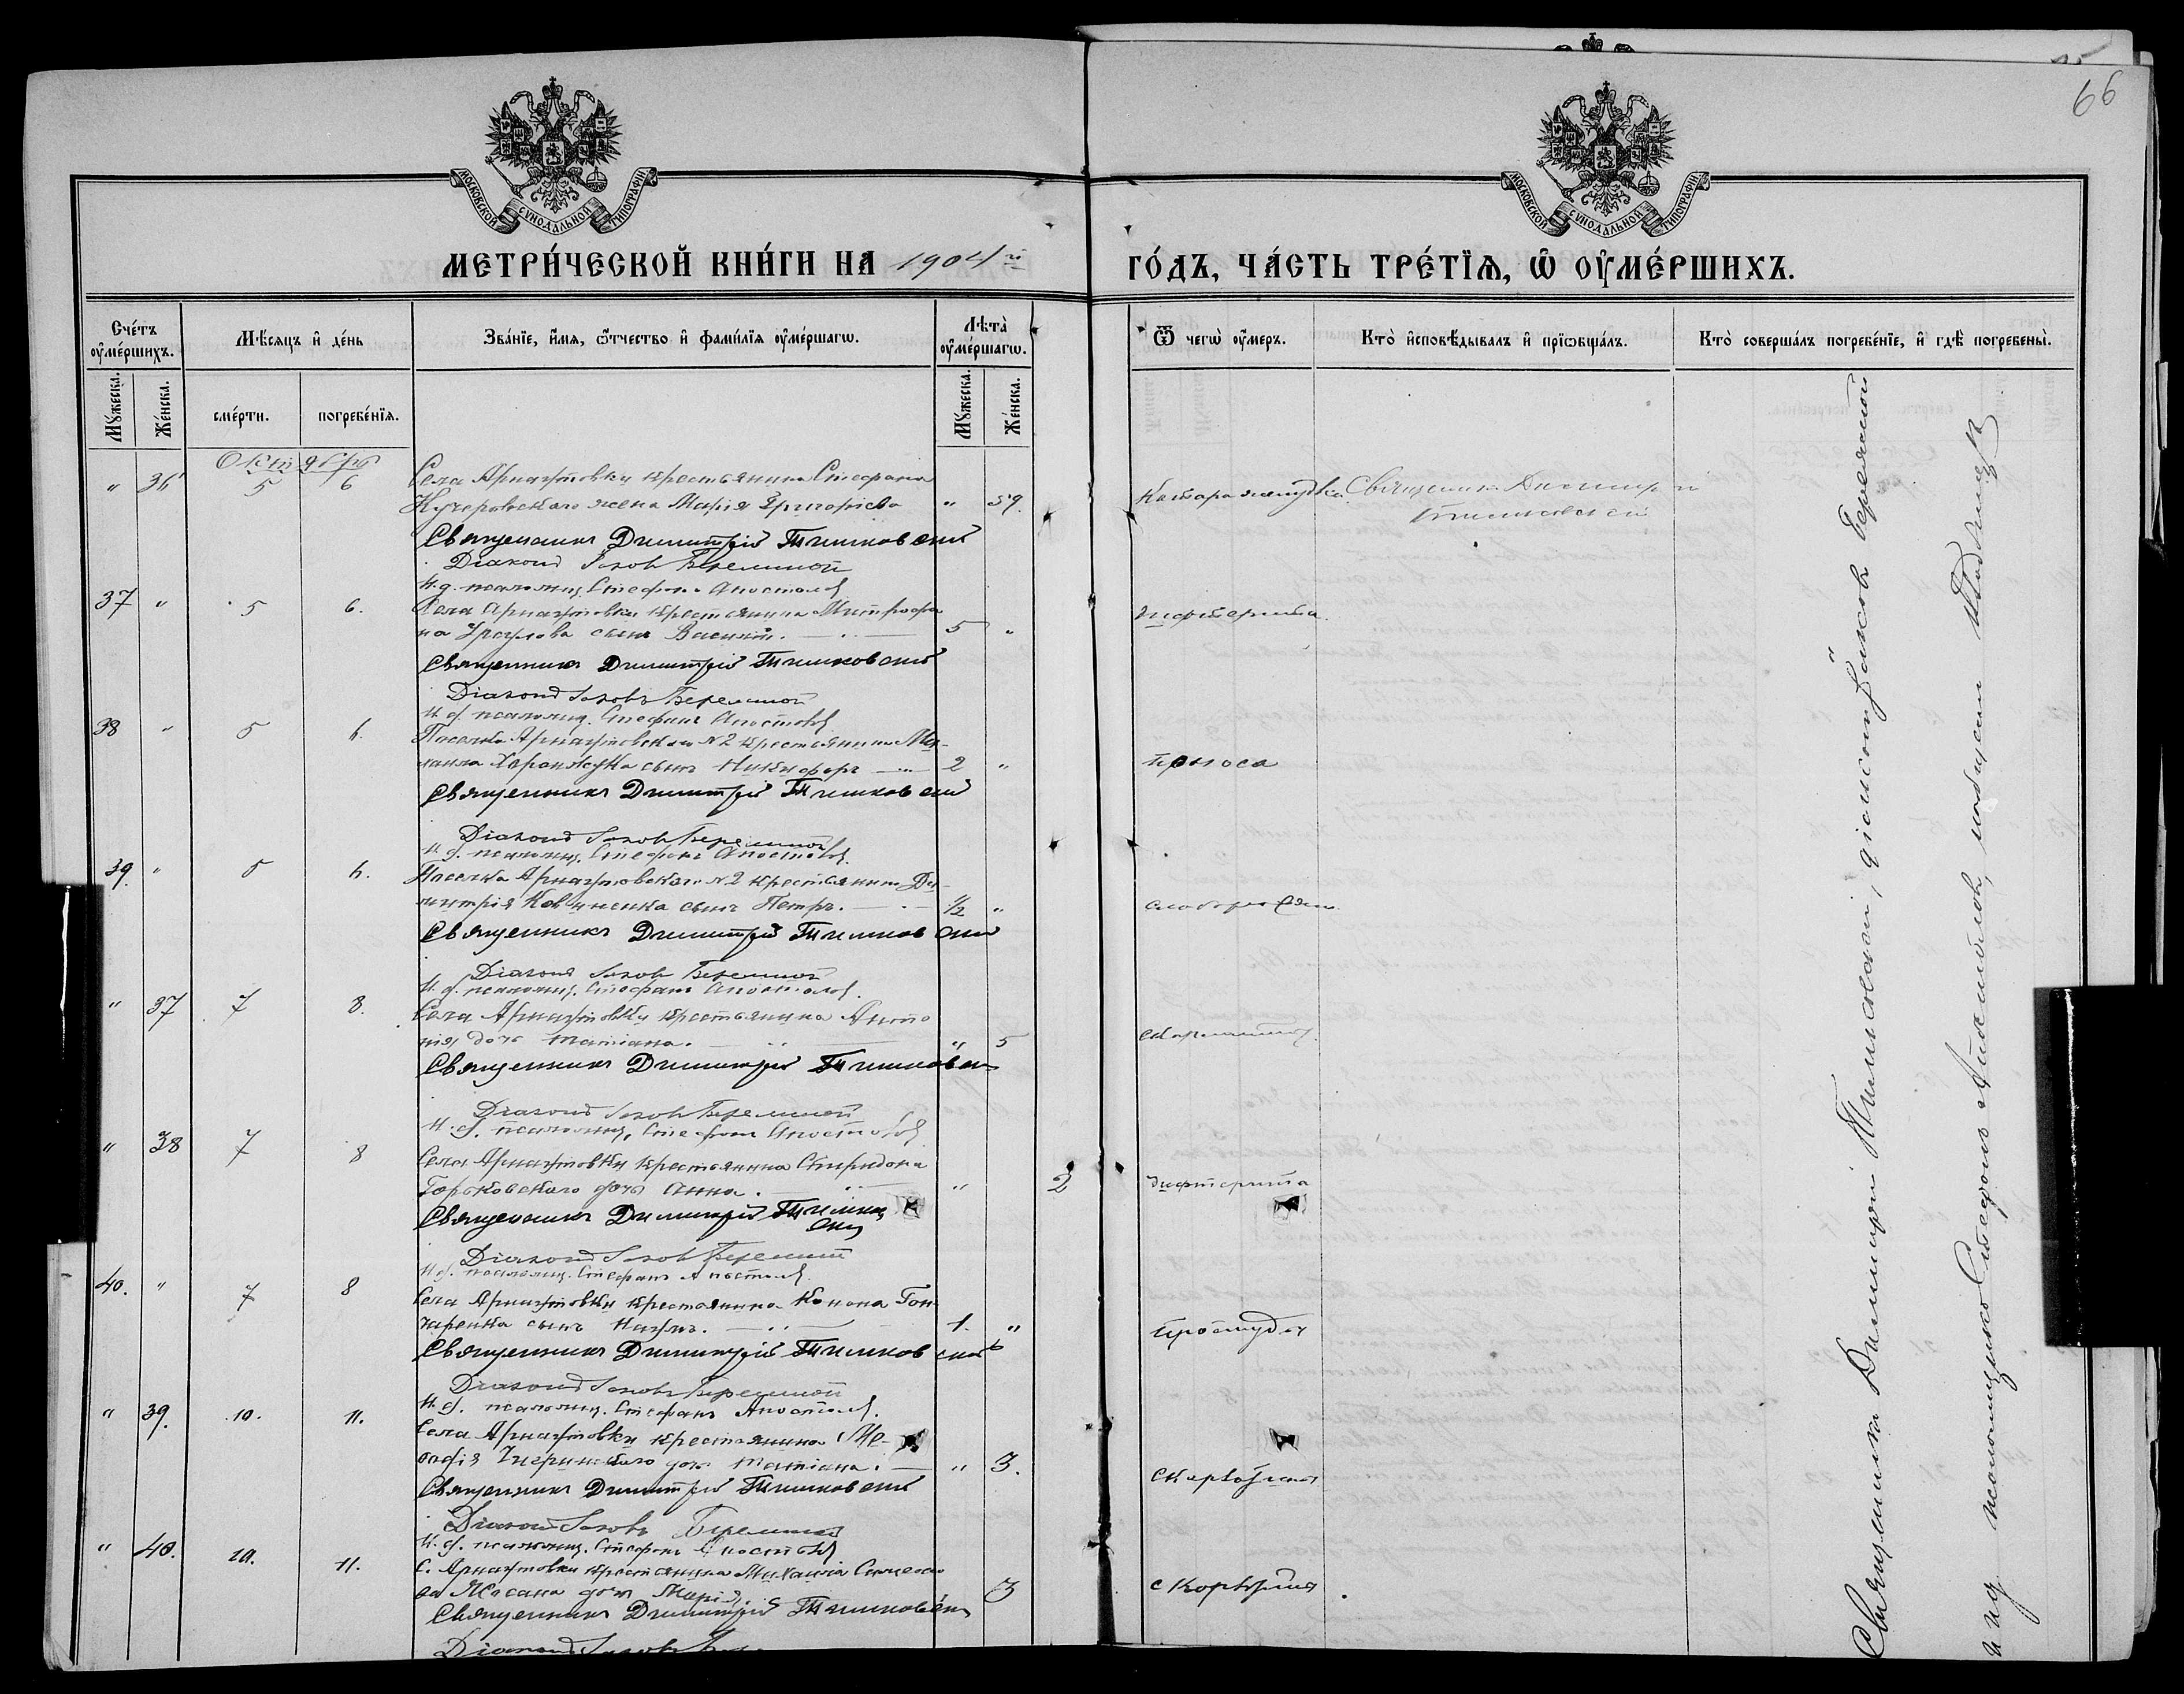 66
МОСКОВСКОЙ СУНОДАЛЬНОЙ ТИПОГРАФІИ
МОСКОВСКОЙ СУНОДАЛЬНОЙ ТИПОГРАФІИ
МЕТРИ́ЧЕСКОЙ КНИ́ГИ НА 1904й
ГО́ДЪ, ЧА́СТЬ ТРЕ́ТІѦ, Ѡ ОУ҆МЕ́РШИХЪ.
Сче́тъ оу҆ме́ршихъ.
Мѣ́сяцъ и҆ де́нь
Зва́нїе, и҆́мя, ѻ҆́тчество и҆ фами́лїя оу҆ме́ршагѡ.
Лѣта̀ оу҆ме́ршагѡ.
Ѿ чегѡ̀ оу҆́меръ.
Кто̀ и҆сповѣ́дывалъ и҆ прїѡбща́лъ.
Кто̀ соверша́лъ погребе́нїе, и҆ гдѣ̀ погребены̀.
Мꙋ́жеска. Же́нска. сме́рти. погребе́нїя. Мꙋ́жеска. Же́нска.
Октября
" 36 5 6 Села Арнаутовки крестьянина Стефана
Кучеровскаго жена Марія Григоріева " 59. Катара желудка Священникъ Димитрій
Тимковскій
Священникъ Димитрій Тимковскій
Діаконъ Іаковъ Бережной
И. д. псаломщ. Стефанъ Апостоловъ
37 " 5 6. Села Арнаутовки крестьянина Митрофа
на сынъ Василій. 5 " Дифтерита.
Священникъ Димитрій Тимковскій
Діаконъ Іаковъ Бережной
И. д. псаломщ. Стефанъ Апостоловъ
38 " 5 6. Поселка Арнаутовскаго №2 крестьянина Ми-
хаила Харанжука сынъ Никифоръ 2 " Поноса
Священникъ Димитрій Тимковскій
Діаконъ Іаковъ Бережной
И. д. псаломщ. Стефанъ Апостоловъ.
39. " 5 6. Поселка Арнаутовскаго №2 крестьянина Ди-
митрія сынъ Петръ. 1/2 "
Священникъ Димитрій Тимковскій
Діаконъ Іаковъ Бережной
И. д. псаломщ. Стефанъ Апостоловъ.
" 37 7 8. Села Арнаутовки крестьянина Анто
нія дочь Татіана. " 5 Скарлатины.
Священникъ Димитрій Тимковскій
Діаконъ Іаковъ Бережной
И. д. псаломщ. Стефанъ Апостоловъ
" 38 7 8 Села Арнаутовки крестьянина Спиридона
Горьковскаго дочь Анна. " 2 Дифтерита
Священникъ Димитрій Тимковскій
Діаконъ Іаковъ Бережной
И. д. псаломщ. Стефанъ Апостоловъ.
40. " 7 8 Села Арнаутовки крестьянина Конона Гон-
чаренка сынъ Наумъ. 1. " Простуды
Священникъ Димитрій Тимковскій
Діаконъ Іаковъ Бережной
И. д. псаломщ. Стефанъ Апостоловъ.
" 39. 10. 11. Села Арнаутовки крестьянина Ме-
фодія дочь Татіана. " 3.
Священникъ Димитрій Тимковскій
Діаконъ Іаковъ Бережной
И. д. псаломщ. Стефанъ Апостоловъ
" 40. 10. 11. С. Арнаутовки крестьянина Михаила
дочь Марія. 3
Священникъ Димитрій Тимковскій
Діаконъ Іаковъ
Священникъ Димитрій Тимковскій, діаконъ Іаковъ Бережной
и и.д. псаломщика Стефанъ Апостоловъ,